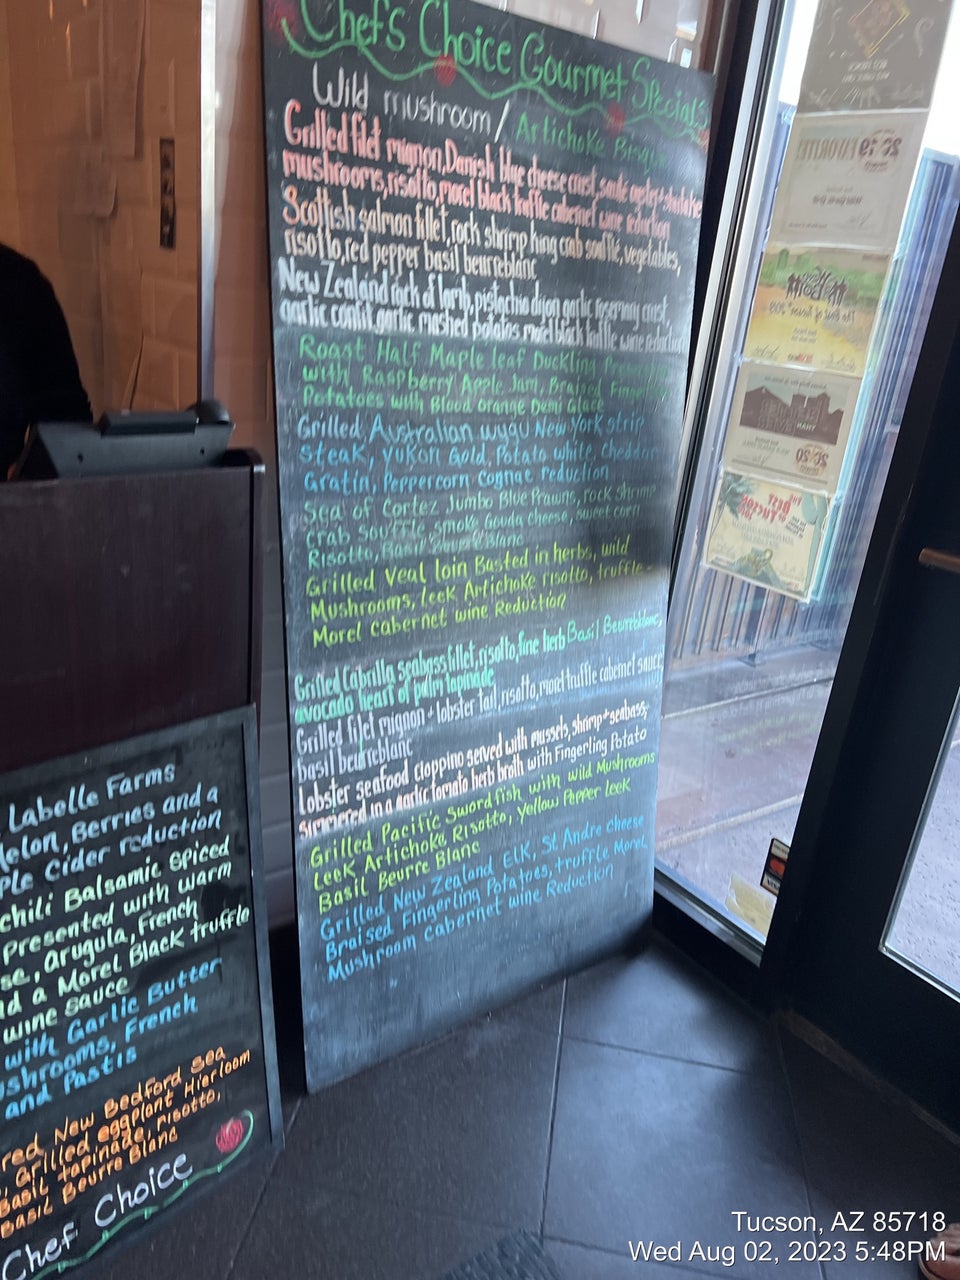 Chef's Choice Gourmet Specials
Wild mushroom / Artichoke Bisque
Grilled filet mignon, Danish blue cheese crust, sauté oyster + shiitake
mushrooms, risotto, morel black truffle cabernet wine reduction
Scottish salmon fillet, rock shrimp king crab soufflé, vegetables,
risotto, red pepper basil beurreblanc
New Zealand rack of lamb, pistachio dijon garlic rosemary crust,
garlic confit, garlic mashed potatoes morel black truffle wine reduction
Roast Half Maple leaf Duckling
with Raspberry Apple Jam, Braised Fingerling
Potatoes with Blood Orange Demi Glace
Grilled Australian wygu New York strip
steak, yukon Gold, Potato white, cheddar
Gratin, Peppercorn Cognac reduction
Sea of Cortez Jumbo Blue Prawns, rock shrimp
crab Souffle, smoke Gouda cheese, sweet corn
Risotto, Basil Beurre Blanc
Grilled Veal loin Basted in herbs, wild
Mushrooms, leek Artichoke risotto, truffle-
Morel cabernet wine Reduction
Grilled Cabrilla seabass fillet, risotto, fine herb Basil Beurreblanc,
avocado heart of palm tapinade
Grilled filet mignon + lobster tail, risotto, morel truffle cabernet sauce,
basil beurreblanc
Lobster seafood cioppino served with mussels, shrimp + seabass,
simmered in a garlic tomato herb broth with Fingerling Potato
Grilled Pacific Swordfish with wild Mushrooms
Leek Artichoke Risotto, yellow Pepper leek
Basil Beurre Blanc
Grilled New Zealand Elk, St Andre cheese
Braised Fingerling Potatoes, truffle Morel
Mushroom cabernet wine Reduction
Labelle Farms
Melon, Berries and a
ple Cider reduction
chili Balsamic Spiced
Presented with warm
se, Arugula, French
d a Morel Black truffle
wine sauce
with Garlic Butter
shrooms, French
and Pastis
red New Bedford Sea
Grilled eggplant Hierloom
Basil tapinade, risotto,
Basil Beurre Blanc
Chef Choice
2019 FAVORITE!
The Best of Tucson 2019
2020
THE BEST OF TUCSON
Tucson, AZ 85718
Wed Aug 02, 2023 5:48PM